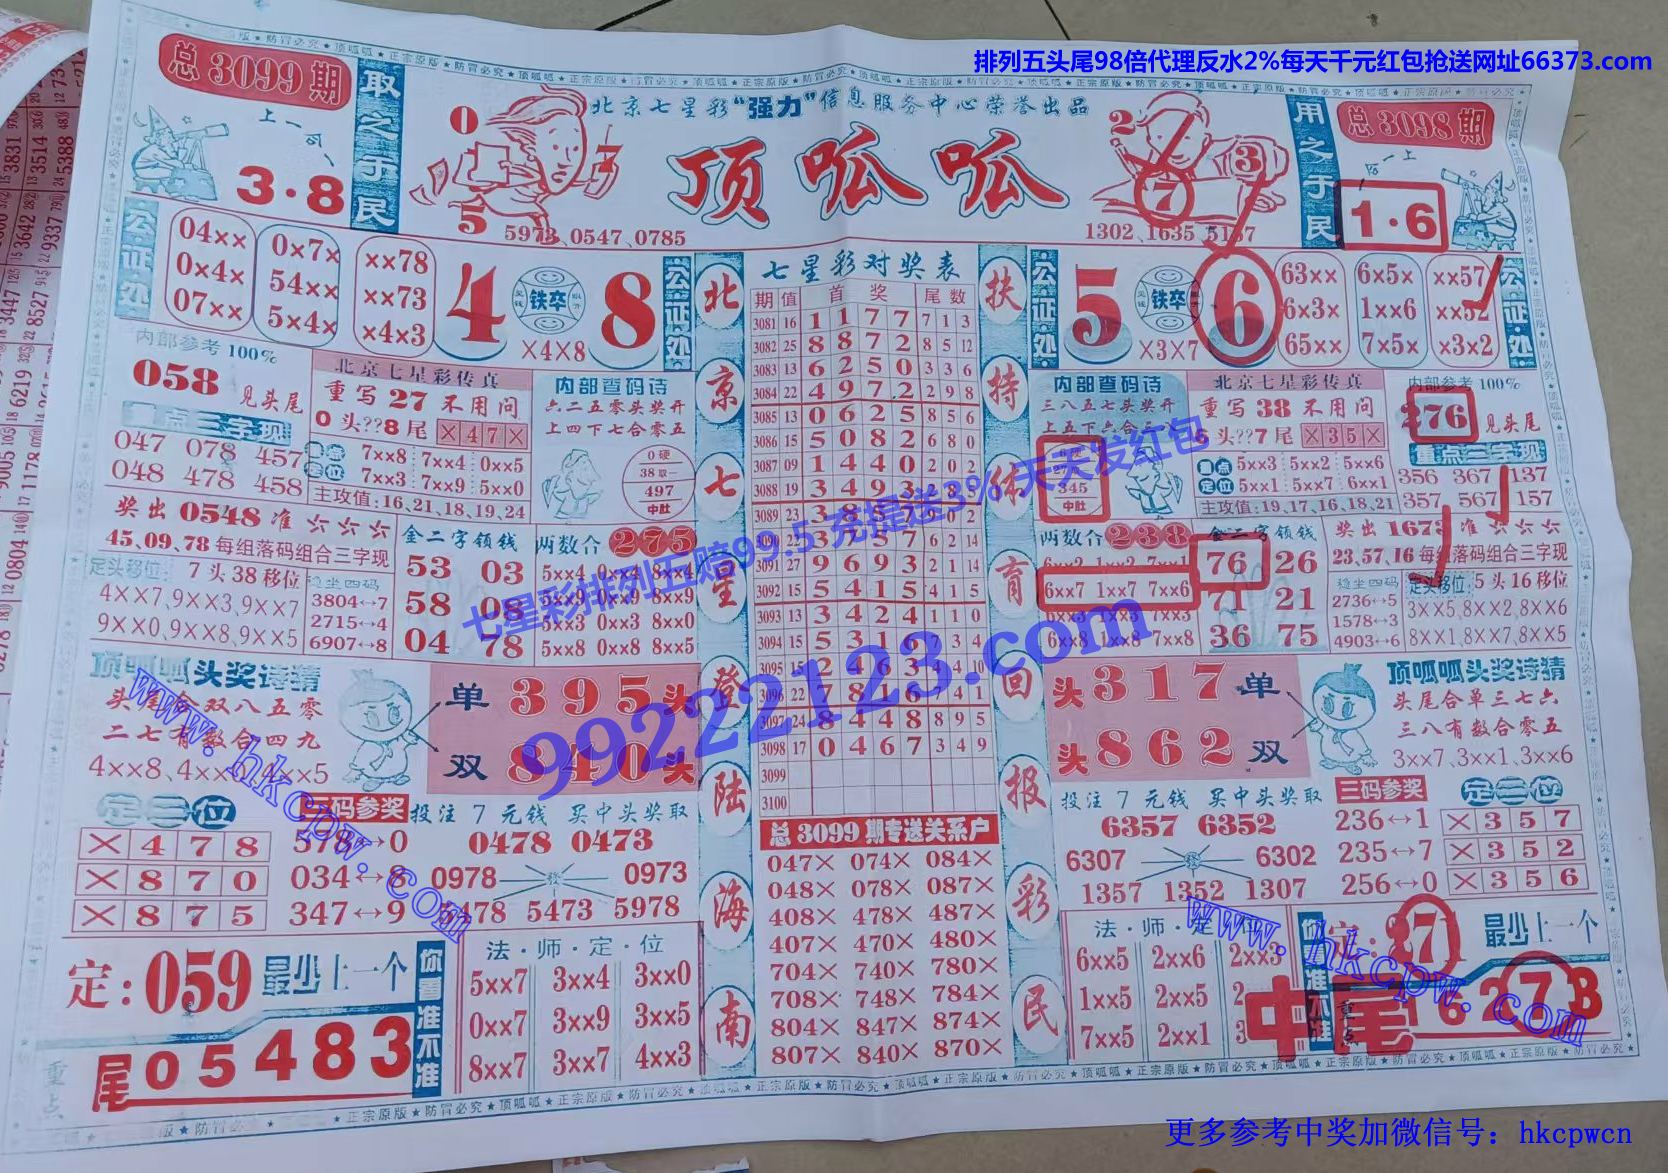 排列五头尾98倍代理反水2%每天千元红包抢送网址66373.com
总3099期
取之于民
上一
3·8
北京七星彩“强力”信息服务中心荣誉出品
顶呱呱
0
5
5973、0547、0785
2
7
3
1302、1635
用之于民
总3098期
1·6
公证处
04×× 0×7× ××78
0×4× 54×× ××73
07×× 5×4× ×4×3
4 铁卒 8
×4×8
公证处
内部参考100%
058 见头尾
重点三字现
047 078 457
048 478 458
北京七星彩传真
重写27不用问
0头??8尾 ×47×
重点定位
7××8 7××4 0××5
7××3 7××9 5××0
主攻值:16,21,18,19,24
内部查码诗
六二五零头奖开
上四下七合零五
0硬
38取一
497
中肚
奖出0548准六六六
45,09,78每组落码组合三字现
定头移位: 7头38移位
4××7,9××3,9××7
9××0,9××8,9××5
稳坐四码
3804↔7
2715↔4
6907↔8
金二字领钱
53 03
58 08
04 78
两数合 275
5××4 0××4 8××4
5××9 0××9 8××9
5××3 0××3 8××0
5××8 0××8 8××5
顶呱呱头奖诗猜
头尾合双八五零
二七有数合四九
单 395头
双 840头
定三位
×478
×870
×875
三码参奖
378↔0
034↔8
347↔9
投注7元钱 买中头奖取
0478 0473
0978 0973
5478 5473 5978
定:059最少上一个
尾05483
你看准不准
重点
法·师·定·位
5××7 3××4 3××0
0××7 3××9 3××5
8××7 3××7 4××3
北京七星登陆海南
七星彩对奖表
期 值 首奖 尾数
3081 16 1 1 7 7 7 1 3
3082 25 8 8 7 2 8 5 12
3083 13 6 2 5 0 3 3 6
3084 22 4 9 7 2 2 9 8
3085 13 0 6 2 5 8 5 6
3086 15 5 0 8 2 6 8 0
3087 09 1 4 4 0 2 0 2
3088 19 3 4 9 3 2 8 5
3089 23 3 8 5 7 9 0 2
3090 22 3 7 5 7 6 2 14
3091 27 9 6 9 3 2 1 14
3092 15 5 4 1 5 4 1 5
3093 13 3 4 2 4 1 1 0
3094 15 5 3 1 6 7 3 4
3095 15 2 4 6 3
3096 22 7 8 1 6
3097 24 8 4 4 8 8 9 5
3098 17 0 4 6 7 3 4 9
3099
3100
总3099期专送关系户
047× 074× 084×
048× 078× 087×
408× 478× 487×
407× 470× 480×
704× 740× 780×
708× 748× 784×
804× 847× 874×
807× 840× 870×
扶持体育回报彩民
公证处
5 铁卒 6
×3×7
63×× 6×5× ××57
6×3× 1××6 ××52
65×× 7×5× ×3×2
公证处
内部查码诗
三八五七头奖开
上五下六合三八
345
中肚
北京七星彩传真
重写38不用问
头??7尾 ×35×
重点定位
5××3 5××2 5××6
5××1 5××7 6××1
主攻值:19,17,16,18,21
内部参考100%
276 见头尾
重点三字现
356 367 137
357 567 157
两数合 238
6××2 1××2 7××1
6××7 1××7 7××6
6××3 1××3 7××3
6××8 1××8 7××8
金二字领钱
76 26
71 21
36 75
奖出1673准六六六
23,57,16每组落码组合三字现
稳坐四码
2736↔5
1578↔3
4903↔6
定头移位:5头16移位
3××5,8××2,8××6
8××1,8××7,8××5
头317单
头862双
顶呱呱头奖诗猜
头尾合单三七六
三八有数合零五
3××7、3××1、3××6
投注7元钱 买中头奖取
6357 6352
6307 6302
1357 1352 1307
三码参奖
236↔1
235↔7
256↔0
定三位
×357
×352
×356
法·师·定
6××5 2××6 2××3
1××5 2××5
7××5 2××1
最少上一个
中尾
重点
七星彩排列五赔99.5充提送3%天天发红包
99222123.com
www.hkcpw.com
www.hkcpw.com
更多参考中奖加微信号：hkcpwcn